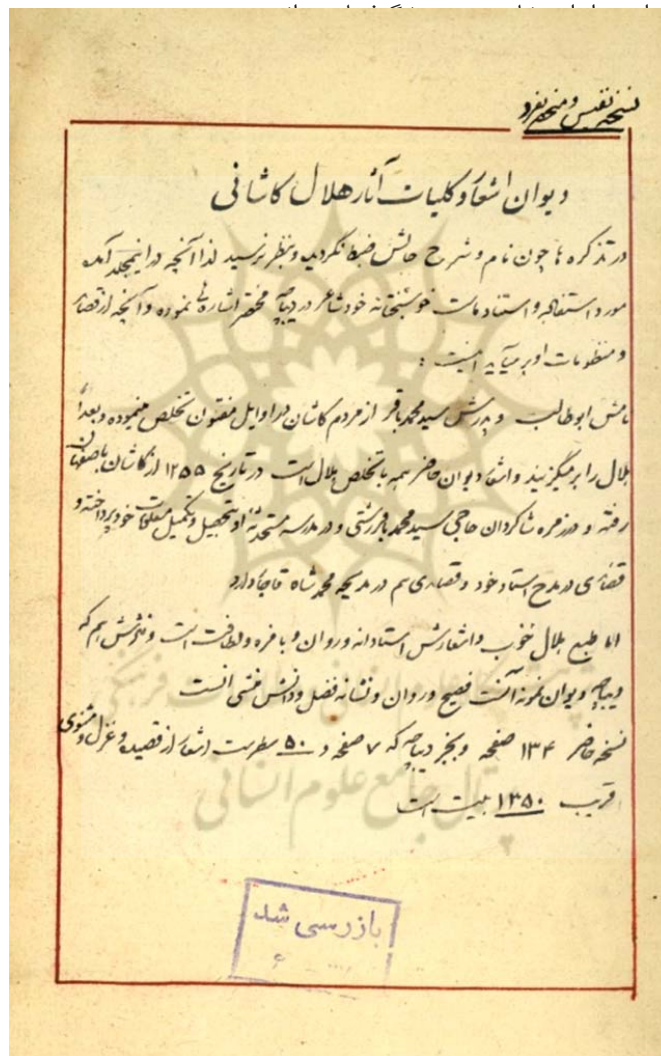 نسخه نفیس و منحصر بفرد
دیوان اشعار و کلیات آثار هلال کاشانی
در تذکره ها چون نام و شرح حالش ضبط نگردیده و بنظر نرسید لذا آنچه در اینمجلد آمده
مورد استفاده و استناد ماست خوشبختانه خود شاعر در دیباچه مختصر اشاره ئی نموده و آنچه از قصائد
و منظومات او بر میآید اینست :
نامش ابوطالب و پدرش سید محمد باقر از مردم کاشان در اوایل مفتون تخلص مینموده و بعداً
هلال را برمیگزیند و اشعار دیوان حاضر همه با تخلص هلال است در تاریخ ۱۲۵۵ از کاشان باصفهان
رفته و در زمره شاگردان حاجی سید محمد باقر رشتی و در مدرسه مستحدثه او تحصیل و تکمیل معلومات خود پرداخته و
قصائدی در مدح استاد خود و قصائدی هم در مدیحه محمد شاه قاجار دارد
اما طبع هلال خوب و اشعارش استادانه و روان و با مزه و لطافت است و نثرش هم که
دیباچه دیوان نمونه آنست فصیح و روان و نشانه فضل و دانش منشی است
نسخه حاضر ۱۳۴ صفحه و بجز دیباچه که ۷ صفحه و ۵۰ سطر است اشعار از قصیده و غزل و مثنوی
قریب ۱۳۵۰ بیت است
پژوهشگاه علوم انسانی و مطالعات فرهنگی
پرتال جامع علوم انسانی
بازرسی شد
۶